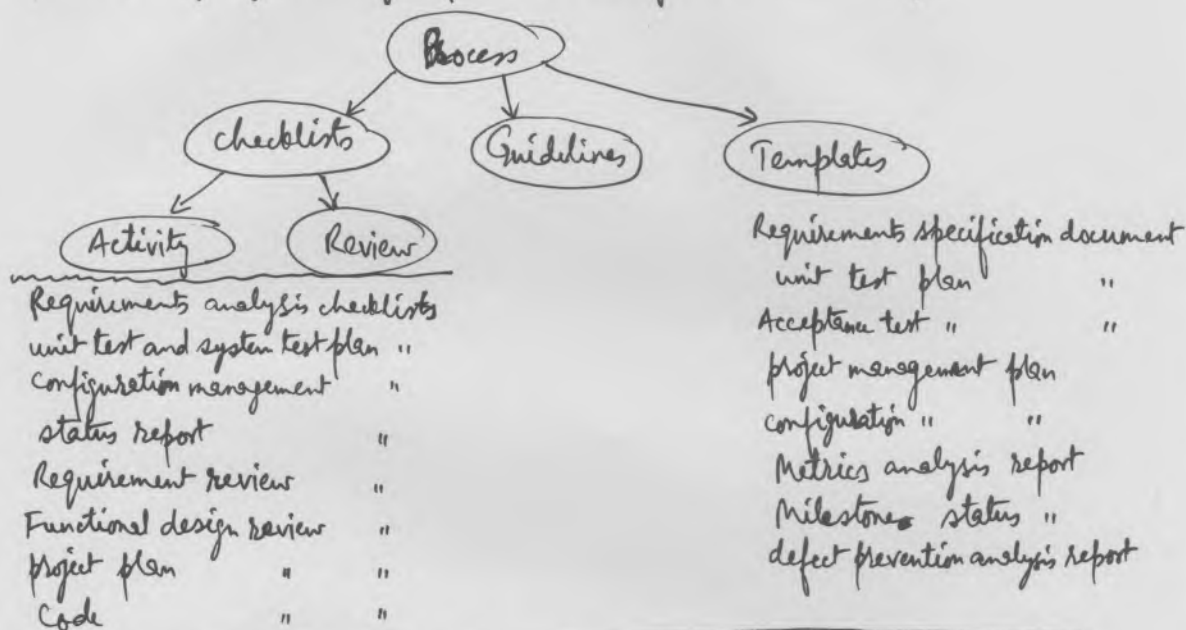 Process
checklists Guidelines Templates
Activity Review
Requirements analysis checklists
unit test and system test plan "
configuration management "
status report "
Requirement review "
Functional design review "
project plan " "
Code " "
Requirements specification document
unit test plan "
Acceptance test " "
project management plan
configuration " "
Metrics analysis report
Milestone status "
defect prevention analysis report